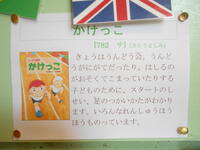 かけっこ
[782 ケ] (きたうよしみ)
かけっこ
きょうはうんどう会。うんどうがにがてだったり、はしるのがおそくてこまっていたりする子どものために、スタートのしせい、足のつかいかたがわかります。いろんなれんしゅうほうほうものっています。